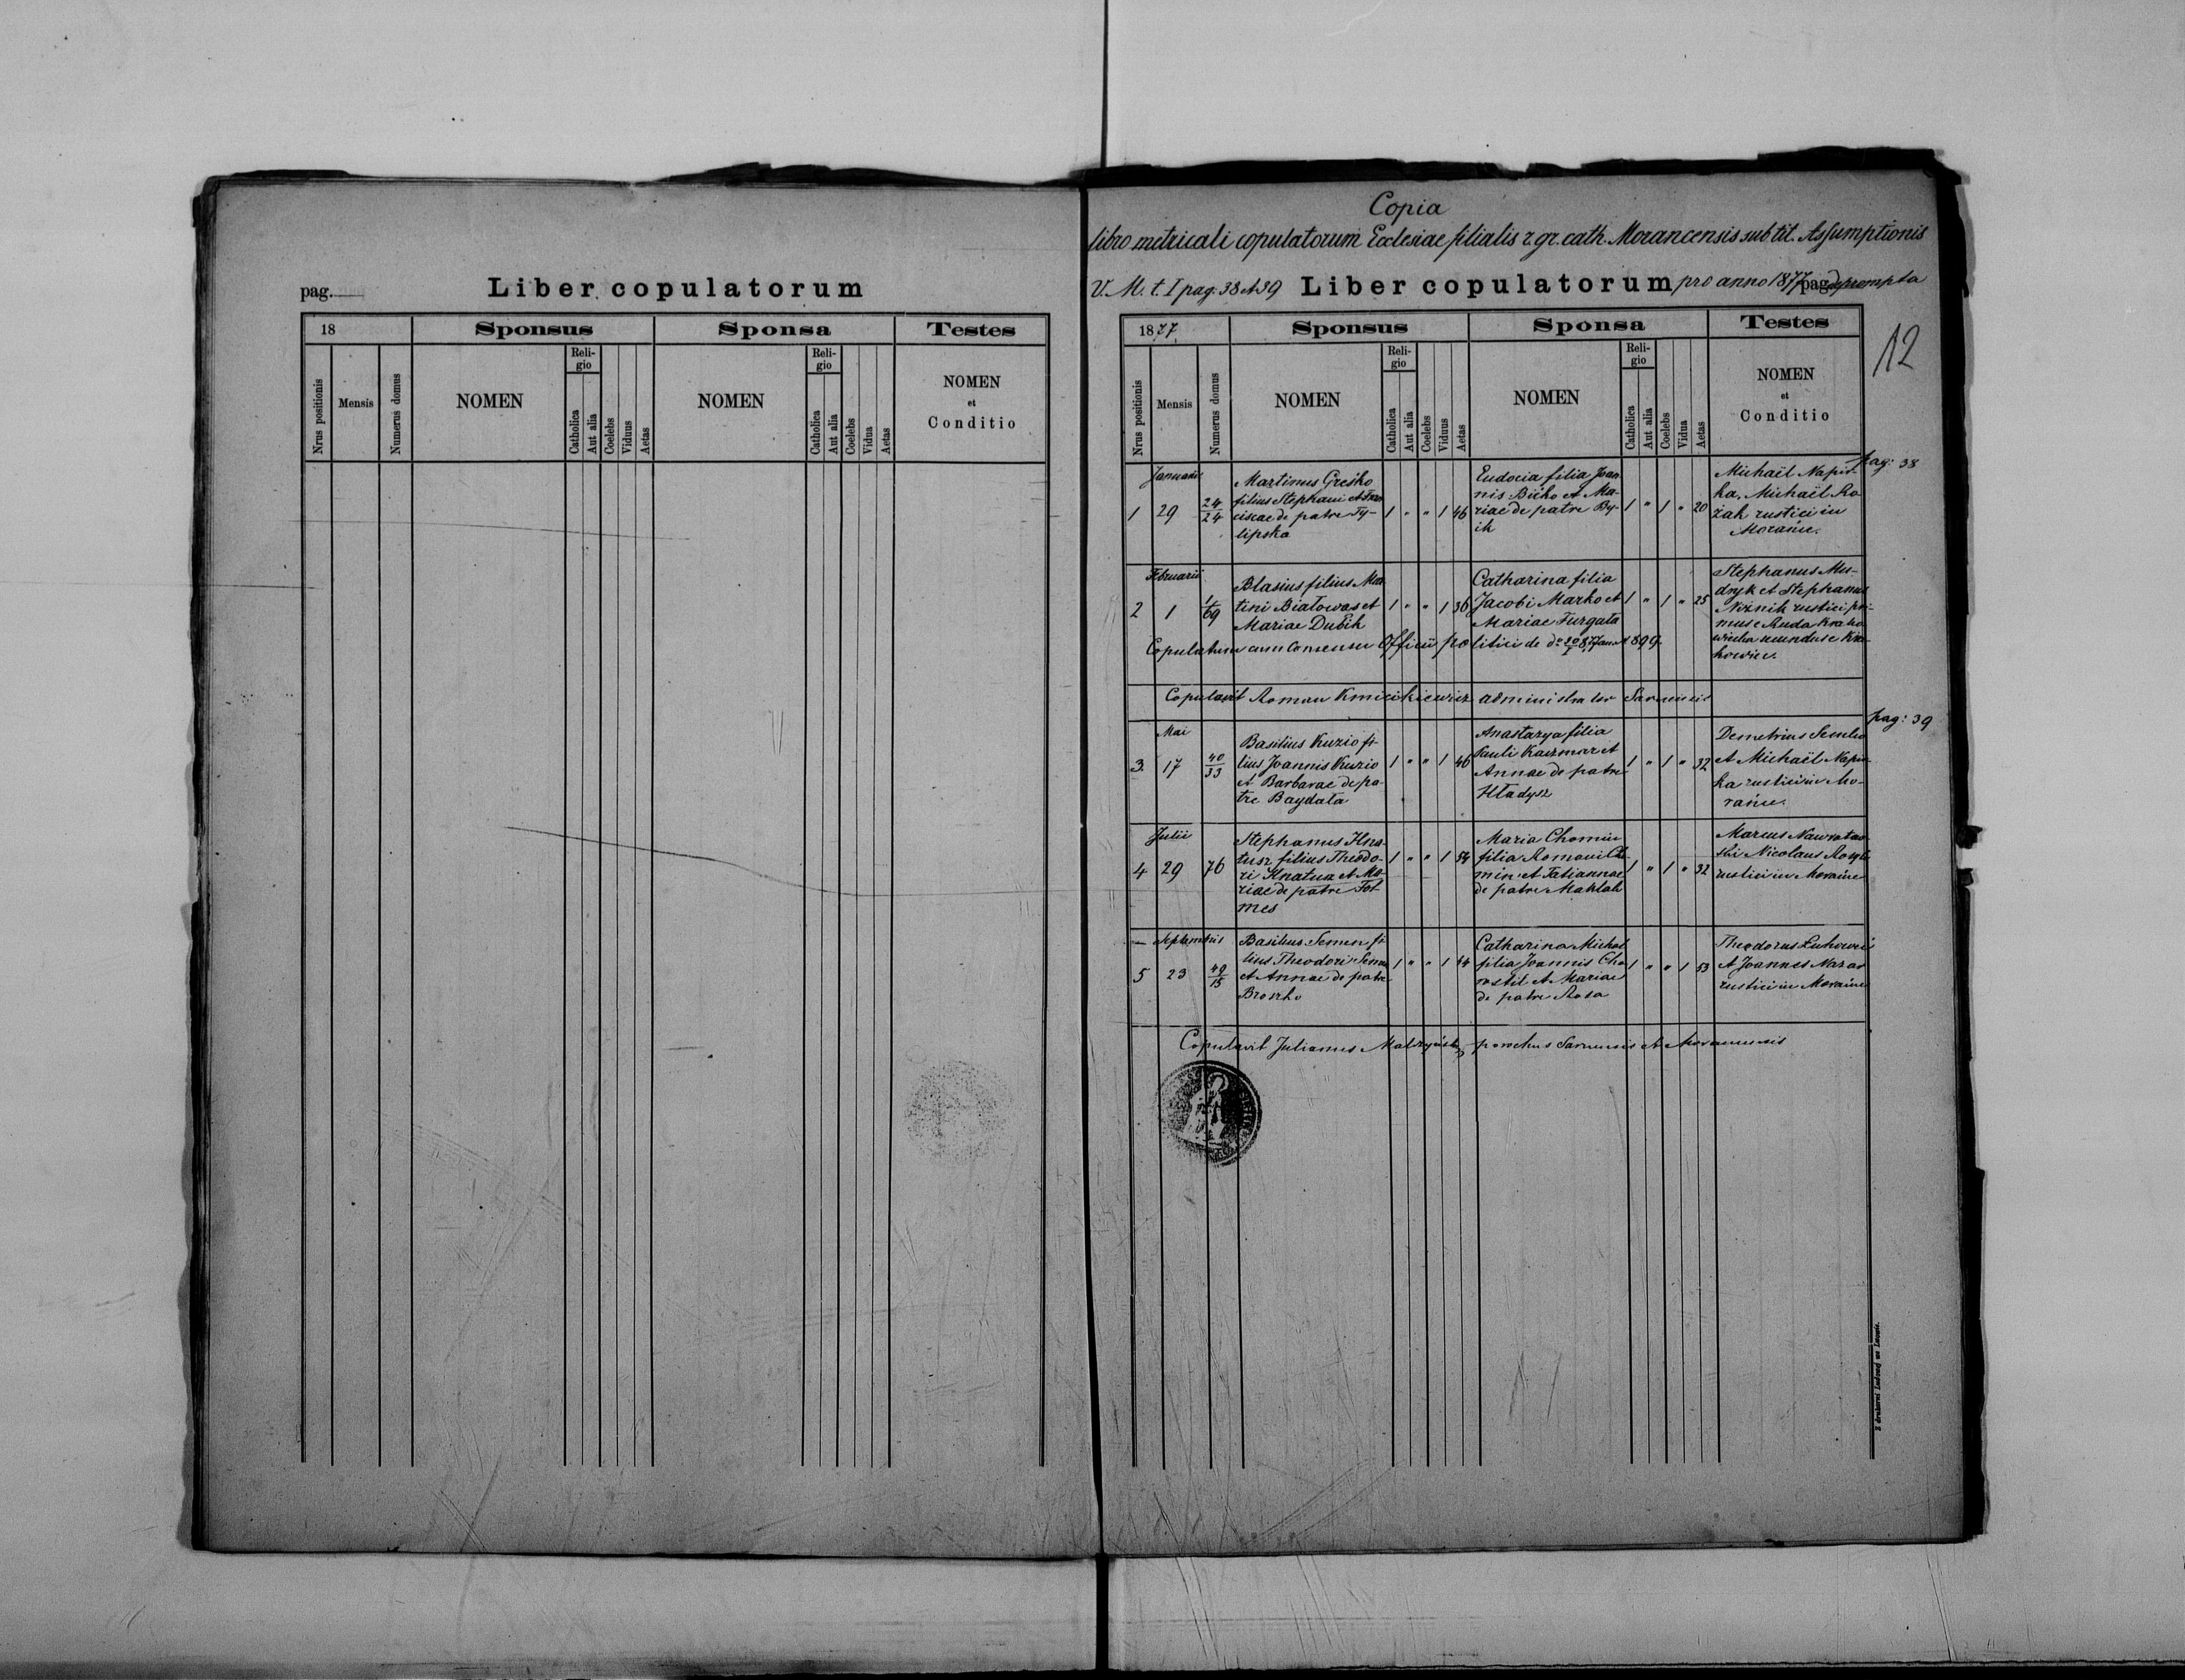 pag.
Liber copulatorum
18
Sponsus
Sponsa
Testes
Nrus positionis
Mensis
Numerus domus
NOMEN
Reli-
gio
Catholica
Aut alia
Coelebs
Viduus
Aetas
NOMEN
Reli-
gio
Catholica
Aut alia
Coelebs
Vidua
Aetas
NOMEN
et
Conditio
Copia
libro metricali copulatorum Ecclesiae filialis r. gr. cath. Morancensis sub tit. Assumptionis
V. M. t. I pag. 38 et 39 Liber copulatorum pro anno 1877 pag. deprompta
12
1877
Sponsus
Sponsa
Testes
Nrus positionis
Mensis
Numerus domus
NOMEN
Reli-
gio
Catholica
Aut alia
Coelebs
Viduus
Aetas
NOMEN
Reli-
gio
Catholica
Aut alia
Coelebs
Vidua
Aetas
NOMEN
et
Conditio
pag: 38
Januarii
1 29 24/24
Martinus Greśko
filius Stephani et Fran
ciscae de patre Fy-
lipska
1 " " 1 46
Eudocia filia Joan
nis Bićko et Ma-
riae de patre By-
ik
1 " 1 " 20
Michaël Napir-
ka, Michaël Ro
żak rustici in
Morańce.
Februarii
2 1 1/69
Blasius filius Mar
tini Białowas et
Mariae Dubik
1 " " 1 36
Catharina filia
Jacobi Marko et
Mariae Furgała
1 " 1 " 25
Stephanus Mu-
dryk et Stephanus
Niznik rustici pri-
mus e Ruda Krako
wiecka secundus e Kra
kowiec.
Copulatum cum Consensu Officii politici de
Copulavit Roman Kmicikiewicz administrator Sarnensis
pag: 39
Mai
3. 17 40/33
Basilius Kuzio fi-
lius Joannis Kuzio
et Barbarae de pa-
tre Baydała
1 " " 1 46
Anastazya filia
Pauli Kaczmar et
Annae de patre
Hładysz
1 " 1 " 32
Demetrius Senko
et Michaël Napir-
ka rustici in Mo-
rańce.
Julii
4 29 76
Stephanus Hna-
tusz filius Theodo-
ri Hnatusz et Ma-
riae de patre Fot
mes
1 " " 1 54
Maria Chomin
filia Romani Cho-
min et Tatiannae
de patre Mahlah
1 " 1 " 32
Marcus Nawrotow
ski Nicolaus
rustici in Morańce
— Septembris
5 23 49/15
Basilius Semen fi-
lius Theodori Semen
et Annae de patre
Broszko
1 " " 1 44
Catharina Michal
filia Joannis Cho
rostil et Mariae
de patre Rosa
1 " " 1 53
Theodorus Luhowei
et Joannes Nazar
rustici in Morańce
Copulavit Julianus parochus Sarnensis et Moranensis
Z drukarni Ludowej we Lwowie.